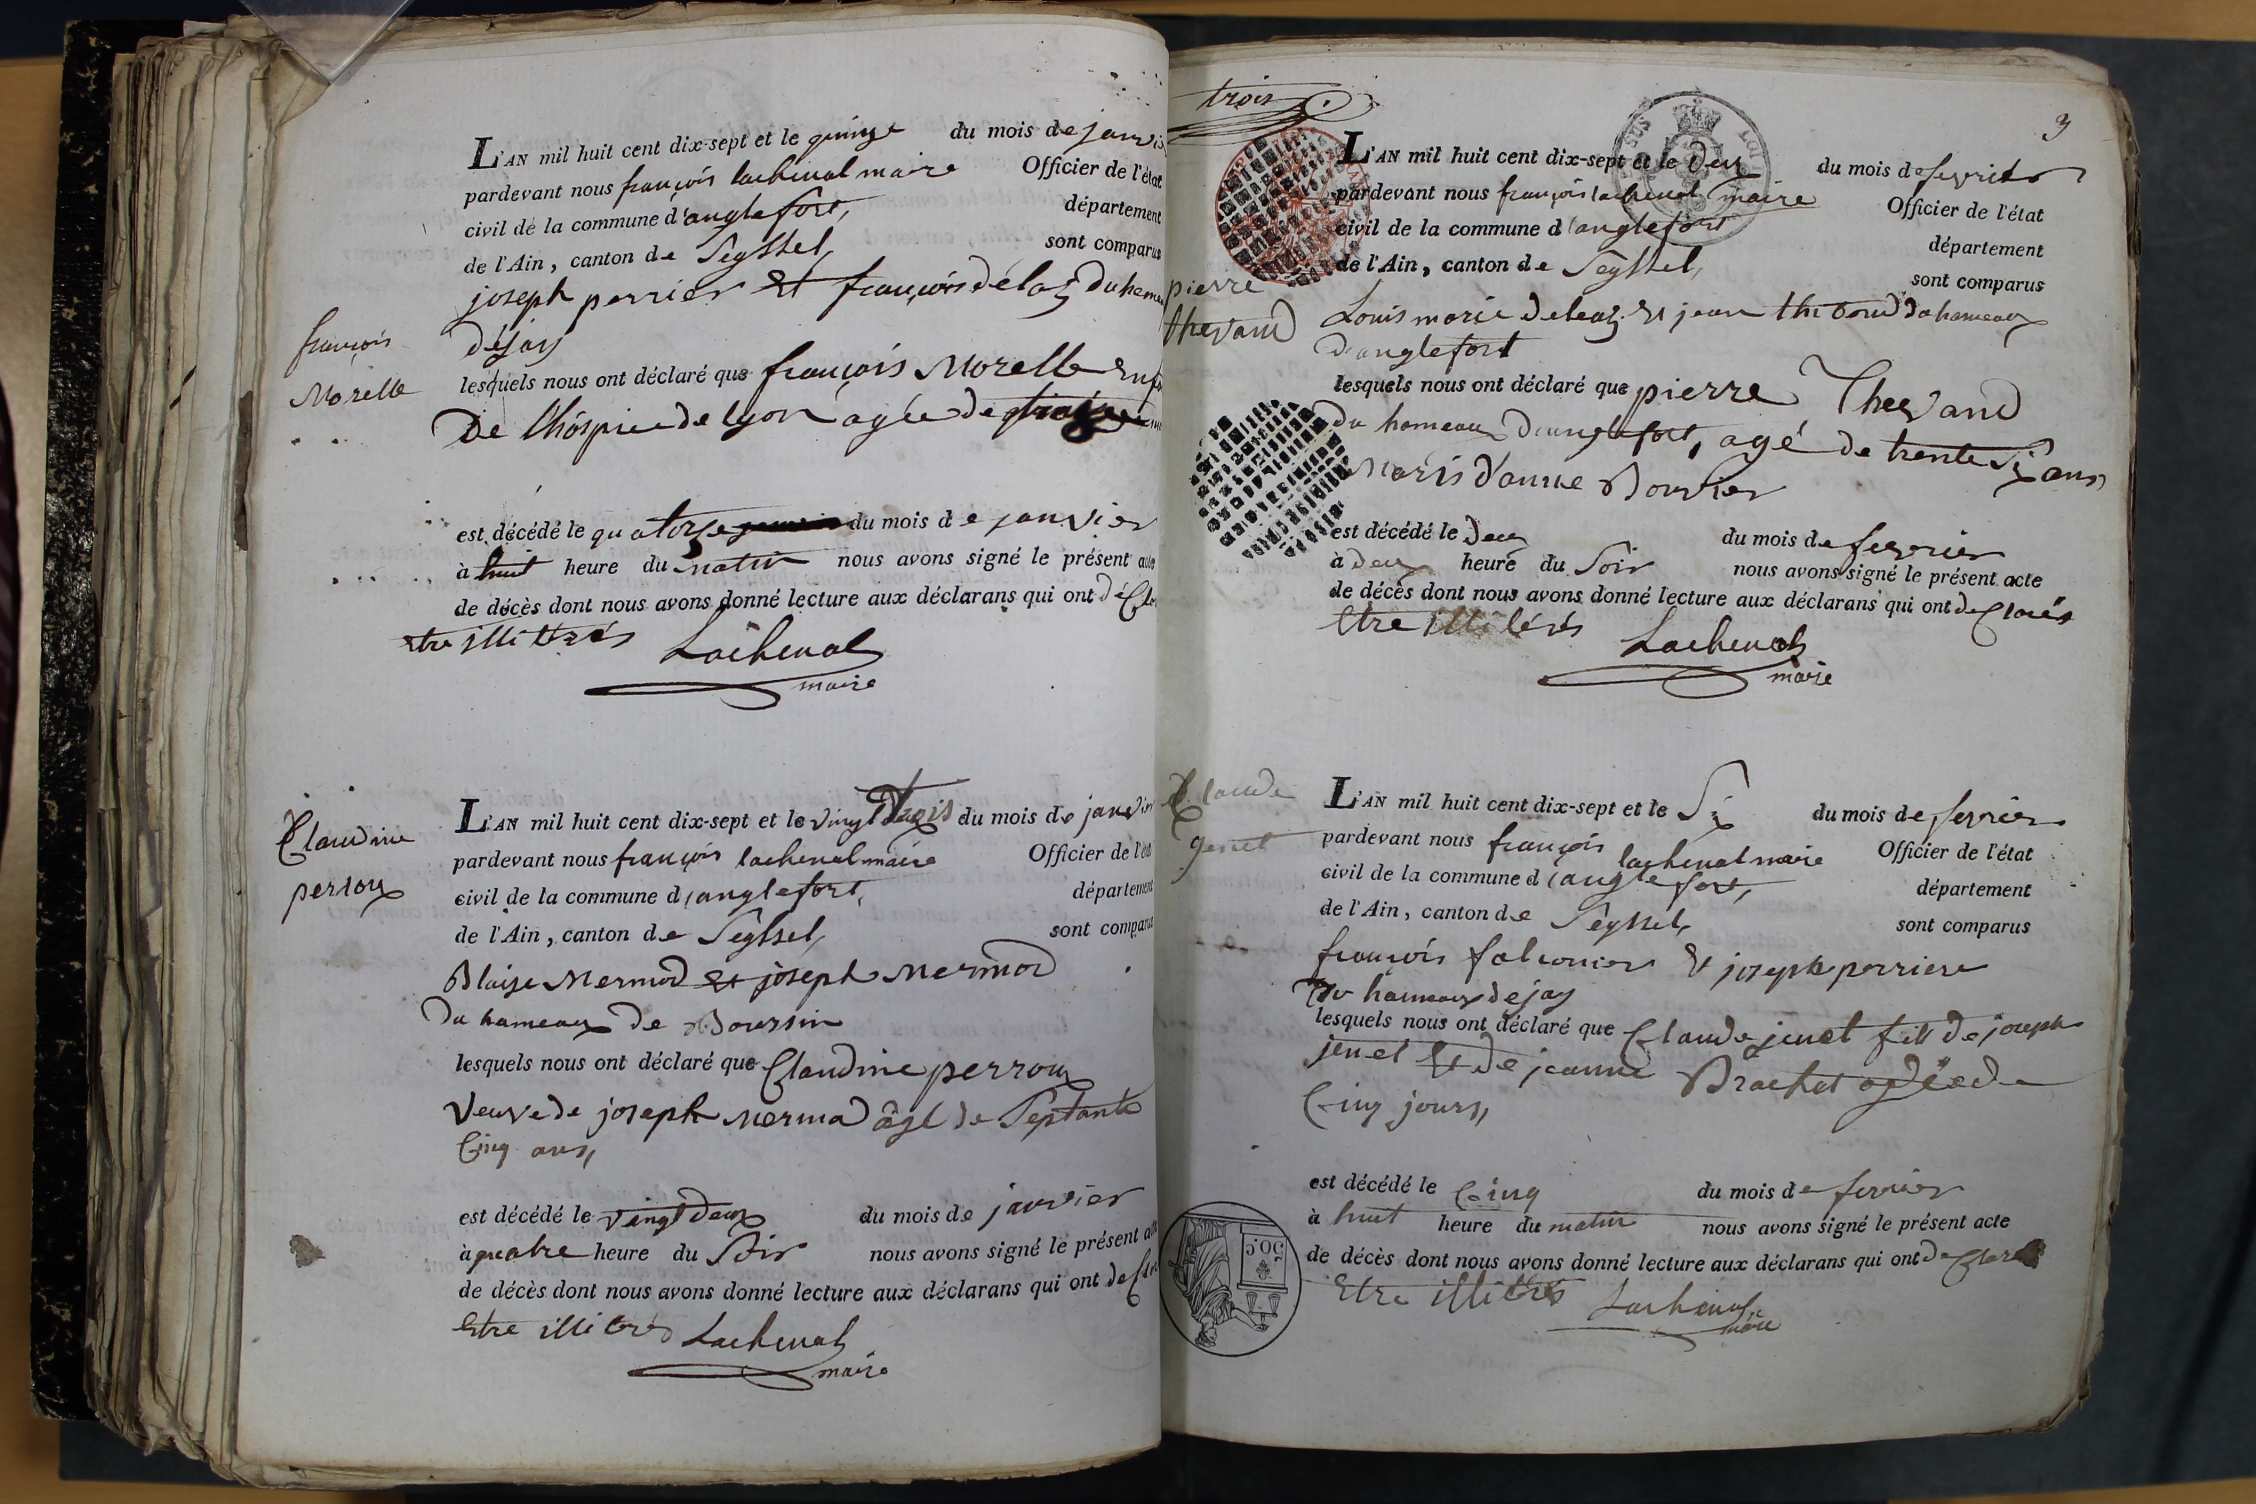 L'AN mil huit cent dix-sept et le quinze du mois de janvi
pardevant nous françois lachenal maire Officier de l'état
civil de la commune d'anglefort, département
de l'Ain, canton de Seyssel, sont comparus
joseph perrier et françois délaz du hame
dejay
françois
Morelle
lesquels nous ont déclaré que françois Morelle enf
De lhospice de lyon agée de
est décédé le quatorze du mois de janvier
à huit heure du matin nous avons signé le présent acte
de décès dont nous avons donné lecture aux déclarans qui ont déclar
etre illitrés Lachenal
maire
Claudine
perroux
L'AN mil huit cent dix-sept et le vingt trois du mois de janvier
pardevant nous françois lachenal maire Officier de l'état
civil de la commune d'anglefort, département
de l'Ain, canton de Seyssel, sont comparus
Blaise Mermod et joseph Mermod
du hameaux de Boursin
lesquels nous ont déclaré que Claudine perroux
veuve de joseph Mermod agé de Septante
Cinq ans,
est décédé le vingt deux du mois de janvier
à quatre heure du Soir nous avons signé le présent acte
de décès dont nous avons donné lecture aux déclarans qui ont declar
Etre illitrés Lachenal
maire
trois
3
L'AN mil huit cent dix-sept et le deux du mois de fevrier
pardevant nous françois lachenal maire Officier de l'état
civil de la commune d'anglefort département
de l'Ain, canton de Seyssel, sont comparus
pierre
thevand
Louis marie deleaz et jean thevend du hameaux
d'anglefort
lesquels nous ont déclaré que pierre Thevand
du hameaux d'anglefort, agé de trente Six ans,
Maris d'anne Bouvier
est décédé le deux du mois de fevrier
à deux heure du Soir nous avons signé le présent acte
de décès dont nous avons donné lecture aux déclarans qui ont declarés
Etre illitérés Lachenal
maire
Claude
genet
L'AN mil huit cent dix-sept et le Six du mois de fevrier
pardevant nous françois lachenal maire Officier de l'état
civil de la commune d'anglefort, département
de l'Ain, canton de Seyssel, sont comparus
françois falconier et joseph perriere
Du hameaux de jay
lesquels nous ont déclaré que Claude jenet fils de joseph
jenet Et de jeanne Brachet agéede
Cinq jours,
est décédé le Cinq du mois de fevrier
à huit heure du matin nous avons signé le présent acte
de décès dont nous avons donné lecture aux déclarans qui ont declaré
Etre illitrés Lachenal
maire
50.C